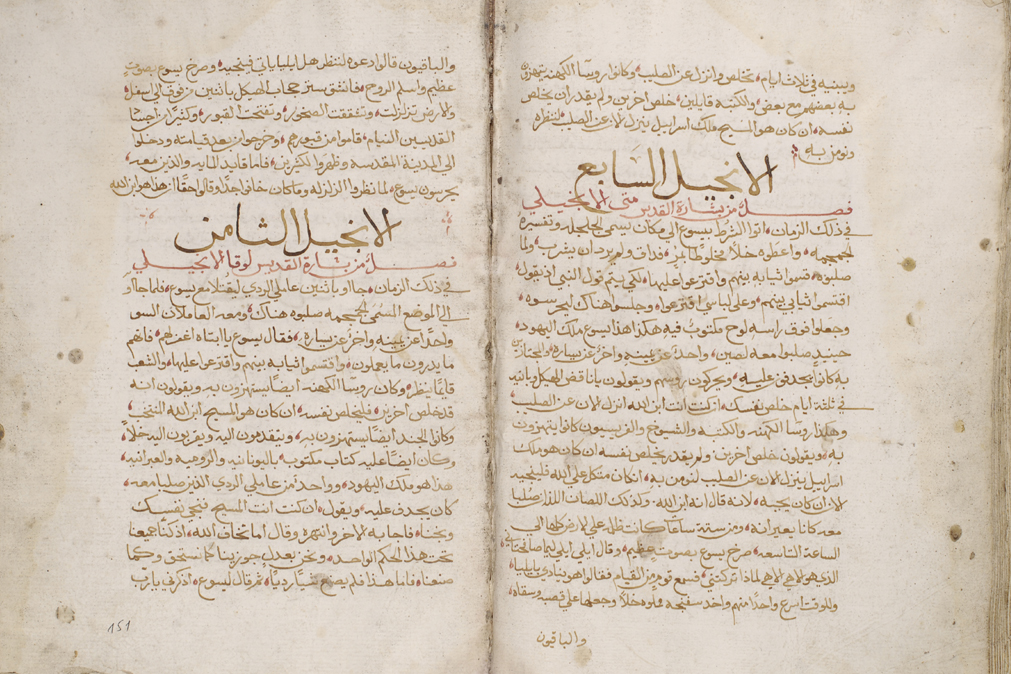 ويبنيه في ثلاث ايام، تخلص وانزل عن الصليب، وكانوا روسا الكهنه يتهزون
به بعضهم مع بعض، والكتبه قايلين، خلص اخرين ولم يقدر ان يخلص
نفسه، ان كان هو المسيح ملك اسراييل ينزل الان عن الصليب لننظره
ونومن به
الانجيل السابع
فصل من بشارة القديس متى الانجيلي
في ذلك الزمان، اتوا الشرط بيسوع الى مكان يسمى الجلجله وتفسيره
الجمجمه، واعطوه خلا مخلوطا بمر، فذاق ولم يرد ان يشرب، ولما
صلبوه، قسموا ثيابه بينهم واقترعوا عليها، لكي يتم قول النبي اذ يقول،
اقتسموا ثيابي بينهم، وعلى لباسي اقترعوا، وجلسوا هناك ليحرسوه،
وجعلوا فوق راسه لوح مكتوب فيه هكذا هذا يسوع ملك اليهود،
حينيذ صلبوا معه لصين، واحد عن يمينه واخر عن يساره، والمجتازين
به كانوا يجدفون عليه، ويحركون روسهم ويقولون يا ناقض الهيكل وبانيه
في ثلثة ايام خلص نفسك، ان كنت انت ابن الله انزل الان عن الصليب،
وهكذا روسا الكهنه والكتبه والشيوخ والفريسيون كانوا يتهزون
به، ويقولون خلص اخرين، ولم يقدر يخلص نفسه ان كان هو ملك
اسراييل ينزل الان عن الصليب لنومن به، ان كان متكل على الله فلينجيه
الان ان كان يحبه، لانه قال انه ابن الله، وكذلك اللصان اللذان صلبا
معه كانا يعيرانه، ومن ستة ساعات كانت ظلمه على الارض كلها الى
الساعة التاسعه، صرخ يسوع بصوت عظيم، وقال ايلي ايلي ليما صافختاني،
الذي هو الاهي الاهي لماذا تركتني، فسمع قوم من القيام فقالوا هو ينادي بايليا،
وللوقت اسرع واحدا منهم واخد سفنجه وملوه خلا، وجعلها على قصبه وسقاه،
والباقون
والباقيون قالوا دعوه لننظر هل ايليا ياتي فينجيه، وصرخ يسوع بصوت
عظيم واسلم الروح، فانشق ستر حجاب الهيكل باثنين من فوق الى اسفل،
والارض تزلزلت، وتشققت الصخور، وتفتحت القبور، وكثير من اجسا
القديسين النيام، قاموا من قبورهم، وخرجوا من بعد قيامته ودخلوا
الى المدينة المقدسه وظهروا لكثيرين، فاما قايد المايه والذين معه،
يحرسون يسوع، لما نظروا الزلزله وما كان خافوا جدا وقالوا حقا ان هذا هو ابن الله
الانجيل الثامن
فصل من بشارة القديس لوقا الانجيلي
في ذلك الزمان، جاوا باثنين عاملي الردي ليقتلا مع يسوع، فلما جاوا
الى الموضع المسمى الجمجمه صلبوه هناك، ومعه العاملان السو
واحدا عن يمينه واخر عن يساره، فقال يسوع يا ابتاه اغفر لهم، فانهم
ما يدرون ما يعملون، واقتسموا ثيابه بينهم واقترعوا عليها، والشعب
قايما ينظر، وكان روسا الكهنه ايضا يستهزون به ويقولون انه
قد خلص اخرين، فليخلص نفسه ان كان هو المسيح ابن الله المنتخب،
وكانوا الجند ايضا يستهزون به، ويتقدمون اليه ويقربون اليه خلا،
وكان ايضا عليه كتاب مكتوبه باليونانيه والروميه والعبرانيه
هذا هو ملك اليهود، وواحد من عاملي الردي الذين صلبا معه،
كان يجدف عليه، ويقول، ان كنت انت المسيح، فنجي نفسك
ونجنا، فاجابه الاخر وانتهره وقال اما تخاف الله، اذ كنا جميعا
تحت هذا الحكم الواحد، ونحن بعدل جوزينا كما نستحق وكما
صنعنا، فاما هذا فلم يصنع شيا رديا، ثم قال ليسوع، اذكرني يا رب
151